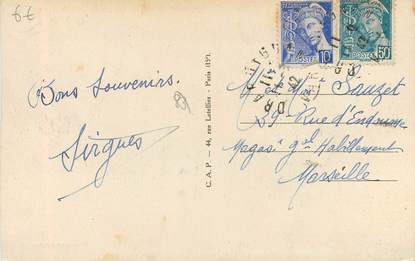 6€
Bons Souvenirs.
Sirgues
C. A. P. — 44, rue Letellier - Paris (15e)
DRAGUIGNAN
POSTES 10c
POSTES 50c
M et Mme Sauzet
29 Rue d'
Magasin gal Habillement
Marseille